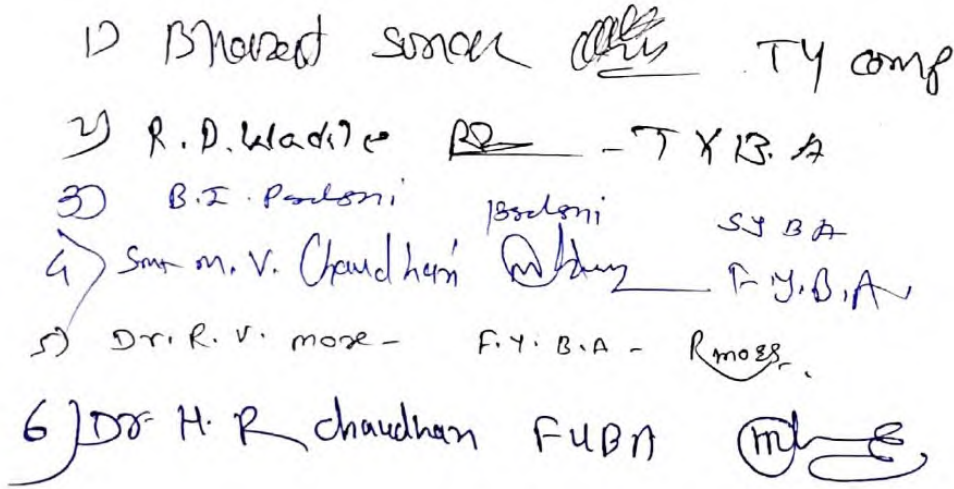 1) Bharat sonar TY comp
2) R.D. Wadile - T Y B. A
3) B.I. Padoni SY BA
4) Smt m. V. Chaudhari F.Y.B.A
5) Dr. R. V. more - F.Y. B.A - Rmore
6) Dr H. R chaudhari FYBA